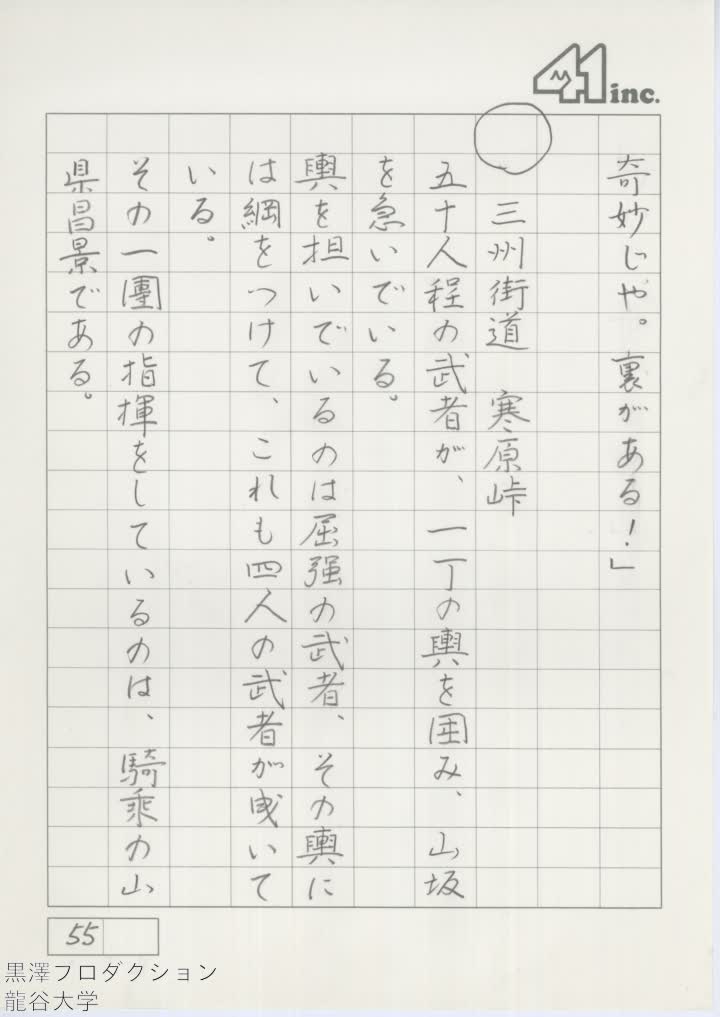 41 inc.
奇妙じや。裏がある!」
三州街道　寒原峠
五十人程の武者が、一丁の輿を囲み、山坂
を急いでいる。
輿を担いでいるのは屈強の武者、その輿に
は綱をつけて、これも四人の武者が曳いて
いる。
その一團の指揮をしているのは、騎乗の山
県昌景である。
55
黒澤プロダクション
龍谷大学